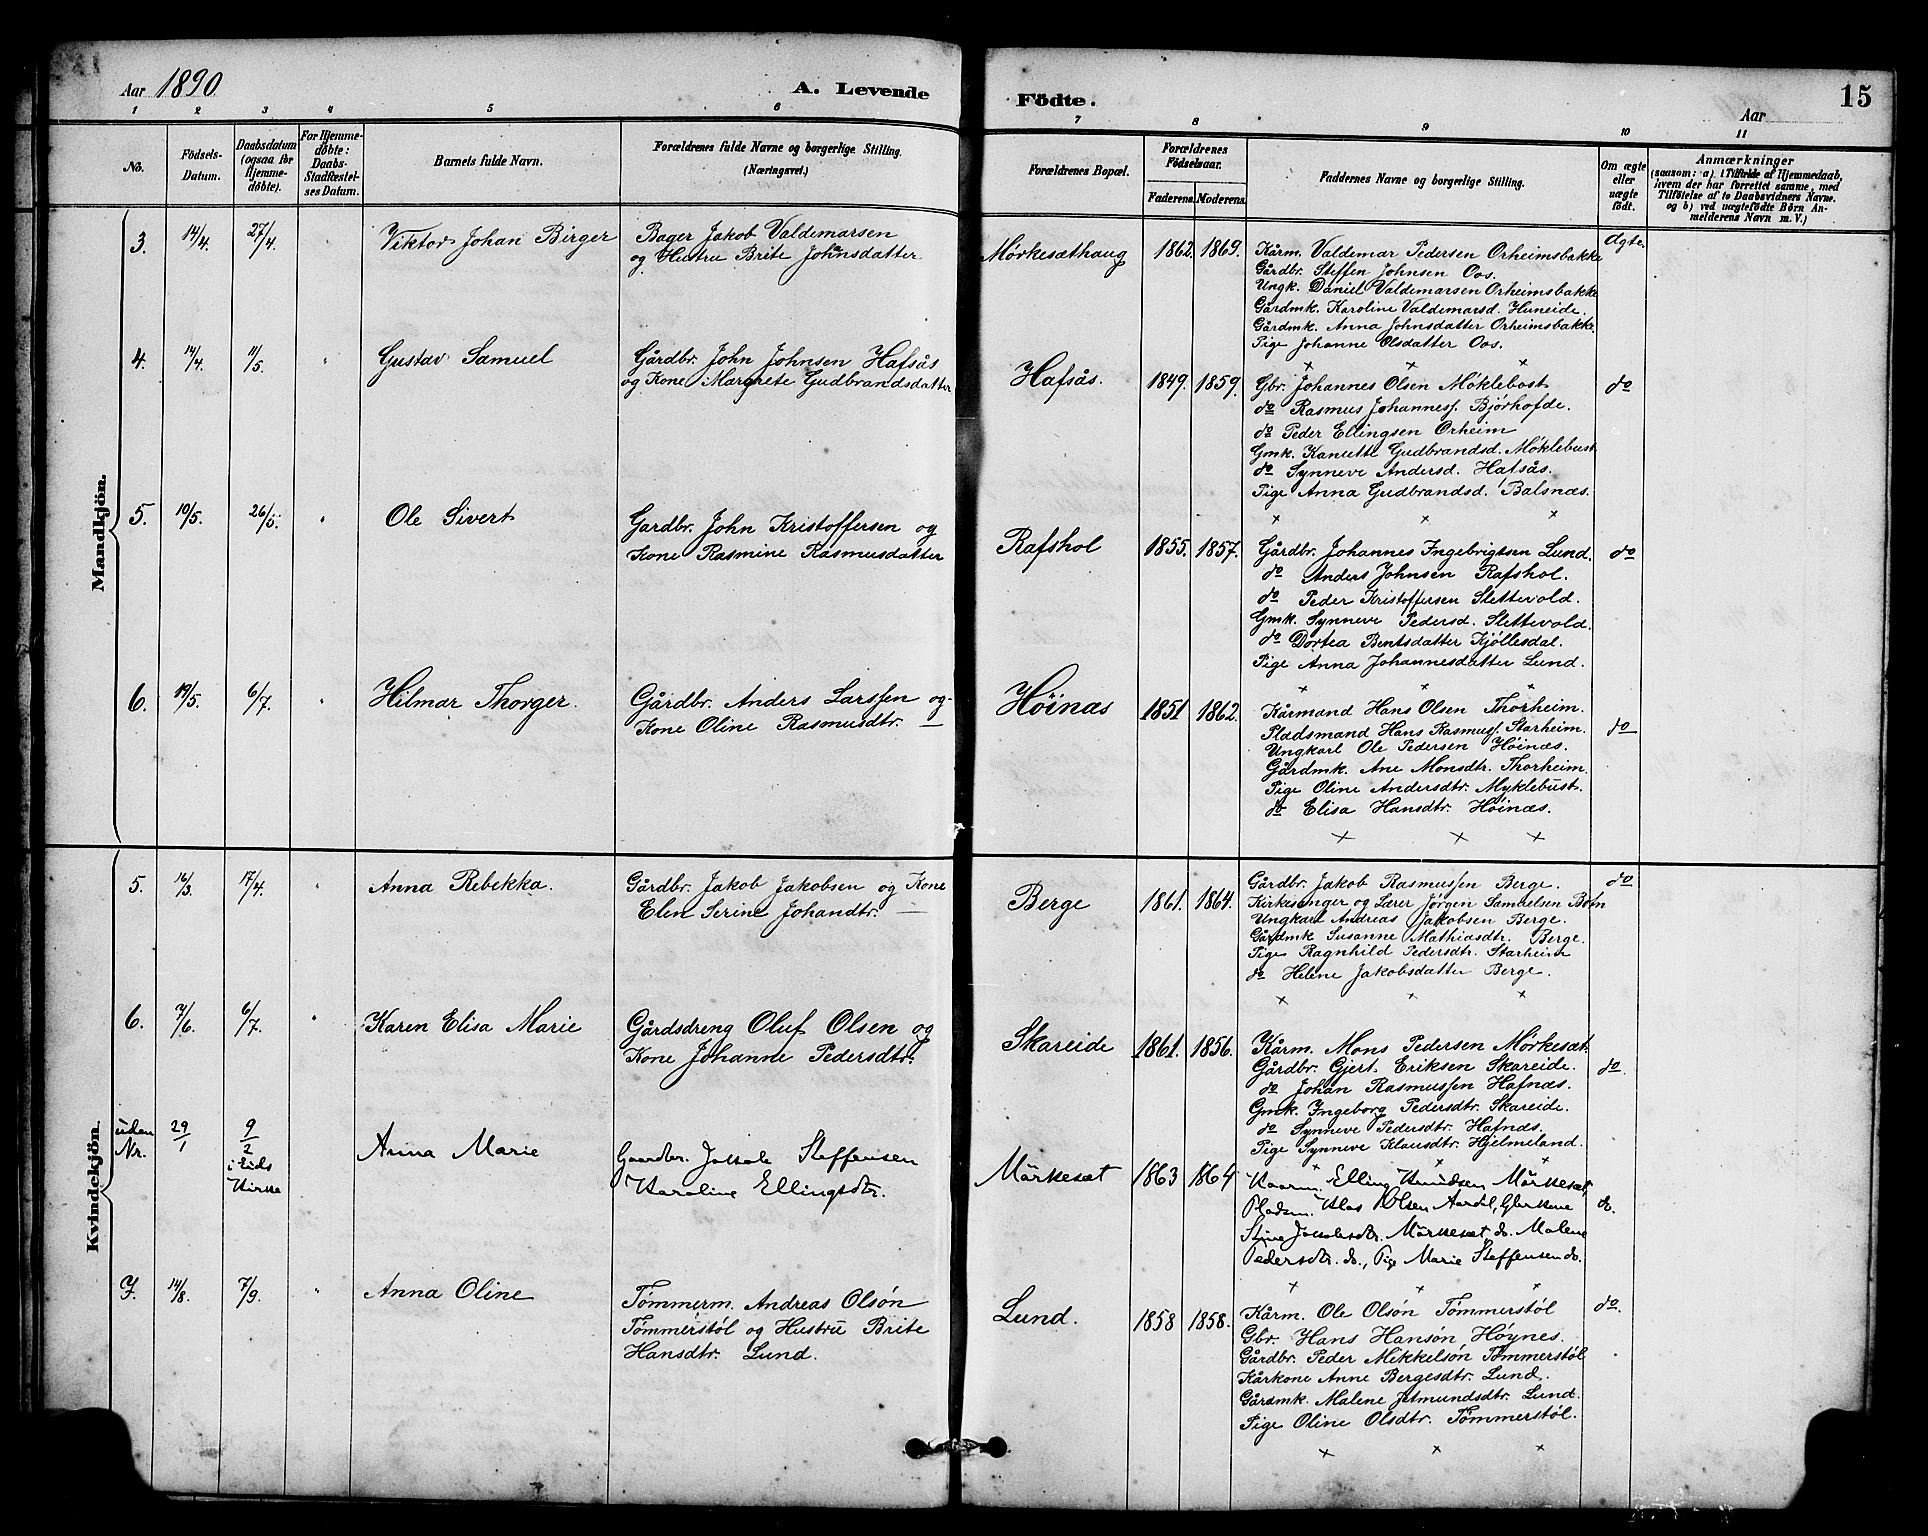 Aar 1890.
A. Levende Födte.
Aar
15
1 2 3 4 5 6 7 8 9 10 11
No.
Födsels-Datum.
Daabsdatum (ogsaa for Hjemmedöbte).
For Hjemmedöbte: Daabs-Stadfæstelses Datum.
Barnets fulde Navn.
Forældrenes fulde Navne og borgerlige Stilling.
(Næringsvei.)
Forældrenes Bopæl.
Forældrenes Födselsaar.
Faderens. Moderens.
Faddernes Navne og borgerlige Stilling.
Om ægte eller uægte født.
Anmærkninger
(saasom: a) i Tilfælde af Hjemmedaab,
hvem der har forrettet samme, med
Tilföielse af to Daabsvidners Navne.
og b) ved uægtefödte Börn An-
melderens Navn m. V.)
Mandkjön.
3. 14/4. 27/4. Viktor Johan Birger
Bager Jakob Valdemarsen
og Hustru Brite Johnsdatter.
Mørkesæthaug 1862. 1869.
Kårm. Valdemar Pedersen Orheimsbakke
Gårdbr. Steffen Johnsen Oos.
Ungk. Daniel Valdemarsen Orheimsbakke
Gårdmk. Karoline Valdemarsd. Huneide.
Gårdmk. Anna Johnsdatter Orheimsbakke.
Pige Johanne Olsdatter Oos.
ægte.
x x x
4. 14/4. 11/5. " Gustav Samuel
Gårdbr. John Johnsen Hafsås
og Kone Margrete Gudbrandsdatter
Hafsås. 1849. 1859.
Gbr. Johannes Olsen Møklebost
do Rasmus Johanness. Bjørhofde.
do Peder Ellingsen Orheim
Gmk. Kanutte Gudbrandsd. Møklebust
do Synneve Andersd. Hafsås.
Pige Anna Gudbrandsd. Balsnæs.
do
x x x
5. 10/5. 26/5. " Ole Sivert
Gardbr. John Kristoffersen og
Kone Rasmine Rasmusdatter
Rafshol 1855. 1857.
Gårdbr. Johannes Ingebrigtsen Lund.
do Anders Johnsen Rafshol.
do Peder Kristoffersen Slettevold.
Gmk. Synneve Pedersd. Slettevold.
do Dortea Bentsdatter Kjøllesdal.
Pige Anna Johannesdatter Lund.
do
x x x
6. 19/5. 6/7. " Hilmar Thorger.
Gårdbr. Anders Larssen og
Kone Oline Rasmusdtr. —
Höinæs 1851 1862.
Kårmand Hans Olsen Thorheim.
Pladsmand Hans Rasmuss. Starheim.
Ungkarl Ole Pedersen Höinæs.
Gårdmk. Ane Monsdtr. Thorheim.
Pige Oline Andersdtr. Myklebust.
do Elisa Hansdtr. Höinæs.
do
x x x
Kvindekjön.
5. 16/3. 17/4. " Anna Rebekka.
Gårdbr. Jakob Jakobsen og Kone
Elen Serine Johandtr. —
Berge 1861. 1864.
Gårdbr. Jakob Rasmussen Berge.
Kirkesanger og Lærer Jörgen Samuelsen
Ungkarl Andreas Jakobsen Berge.
Gårdmk Susanne Mathiasdtr. Berge.
Pige Ragnhild Pedersdtr. Starheim
do Helene Jakobsdatter Berge.
do
x x x
6. 7/6. 6/7. " Karen Elisa Marie
Gårdsdreng Oluf Olsen og
Kone Johanne Pedersdtr.
Skareide 1861. 1856.
Kårm. Mons Pedersen Mörkesæt.
Gårdbr. Gjert Eriksen Skareide.
do Johan Rasmussen Hafnæs.
Gmk. Ingeborg Pedersdtr. Skareide.
do Synneve Pedersdtr. Hafnæs.
Pige Synneve Klausdtr. Hjelmeland.
do.
x x x
uden Nr. 29/1 9/2 i Eids Kirke Anna Marie
Gaardbr. Jakob Steffensen
Karoline Ellingsdtr.
Mörkesæt 1863 1864
Kaarm. Elling Knudsen Mörkesæt,
Pladsm. Klas Olsen Aardal, Gbrkone
Stine Jakobsdtr. Mörkesæt, do. Malene
Pedersdtr. do., Pige Marie Steffensen do.
do.
x x x
7. 14/8. 7/9. " Anna Oline
Tømmerm. Andreas Olsøn
Tømmerstøl og Hustru Brite
Hansdtr. Lund.
Lund. 1858 1858.
Kårm. Ole Olsøn Tømmerstøl
Gbr. Hans Hansøn Høynes.
Gårdbr. Peder Mikkelsøn Tømmerstøl
Kårkone Anne Bergesdtr. Lund.
Gårdmk. Malene Jetmundsdtr. Lund.
Pige Oline Olsdtr. Tømmerstøl.
do.
x x x